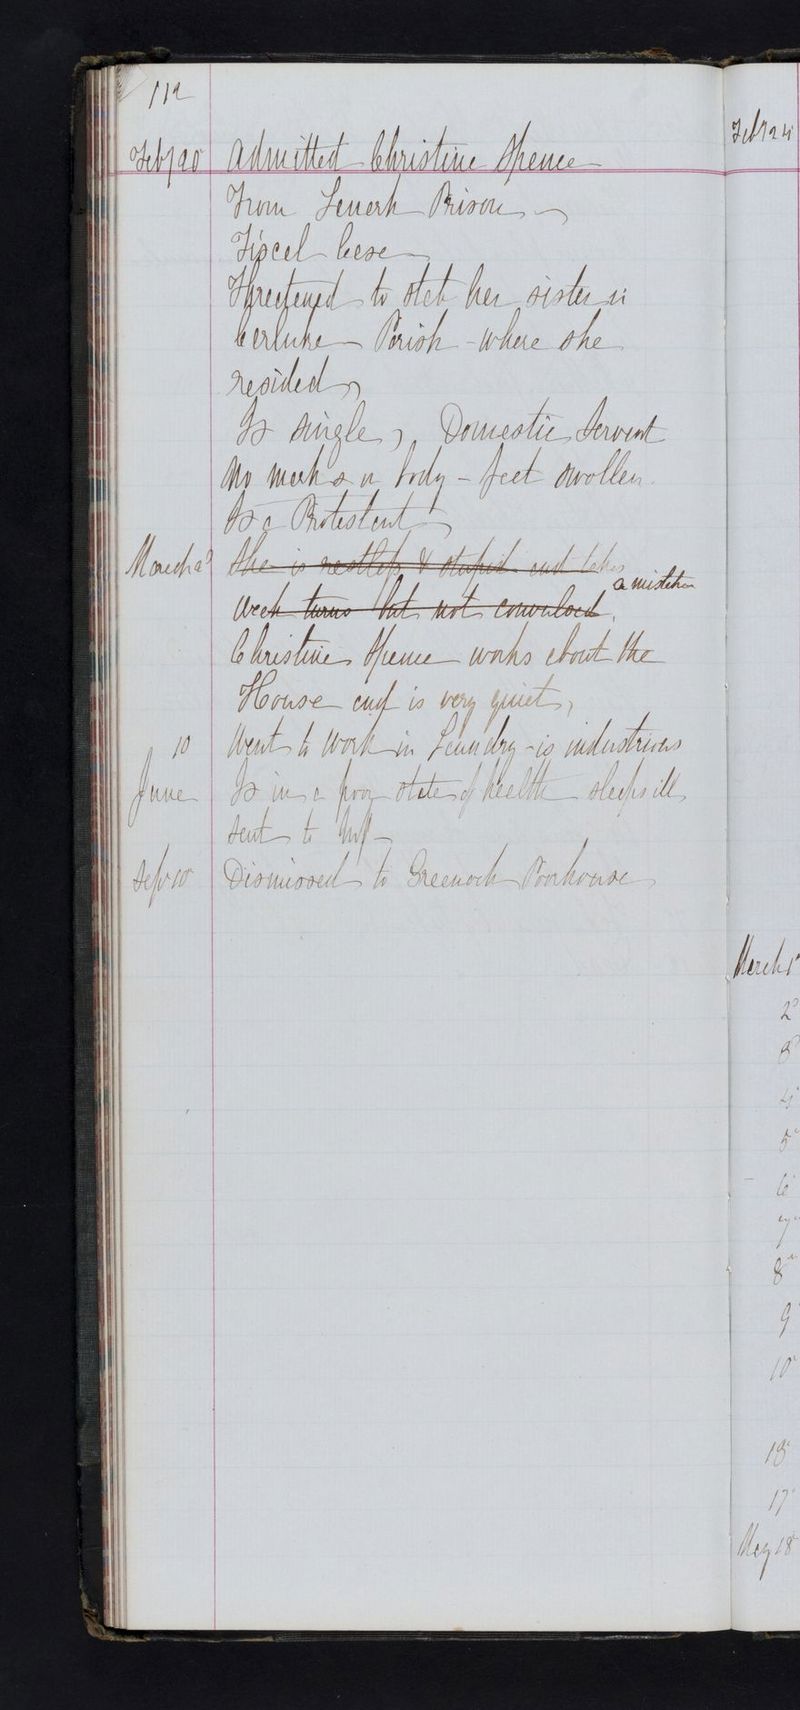 112
Feby 20 Admitted Christine Spence
From Lanark Prison
Fiscal Case
Threatened to stab her sister in
Carluke Parish - where she
resided,
Is single, Domestic Servant
No marks on body - feet swollen
Is a Protestant
March 2d She is restless & stupid and takes
a mistake
weak turns but not convulsed.
Christine Spence works about the
House and is very quiet,
10 Went to work in Laundry - is industrious
June Is in a poor state of health sleeps ill
sent to Inf -
Sep 10 Dismissed to Greenock Poorhouse
Feby 24
March 1
2
3
4
5
6
7
8
9
10
13
17
May 18